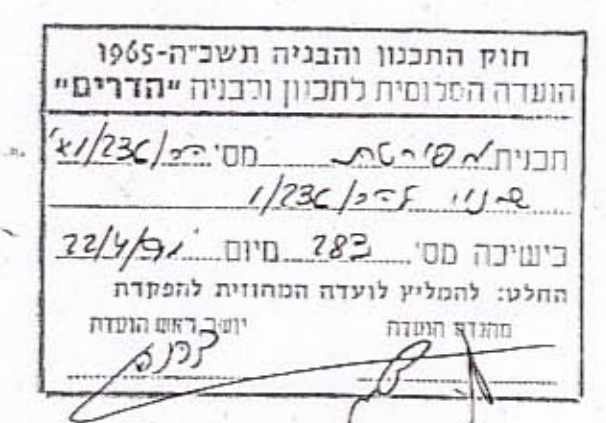 חוק התכנון והבניה תשכ"ה-1965
הועדה המקומית לתכנון ולבניה "הדרים"
תכנית מפורטת מס' הר/236/1א'
שנוי להר/236/1
בישיבה מס' 283 מיום 22/4/91
החלט: להמליץ לועדה המחוזית להפקדת
מהנדס הועדה יושב ראש הועדה